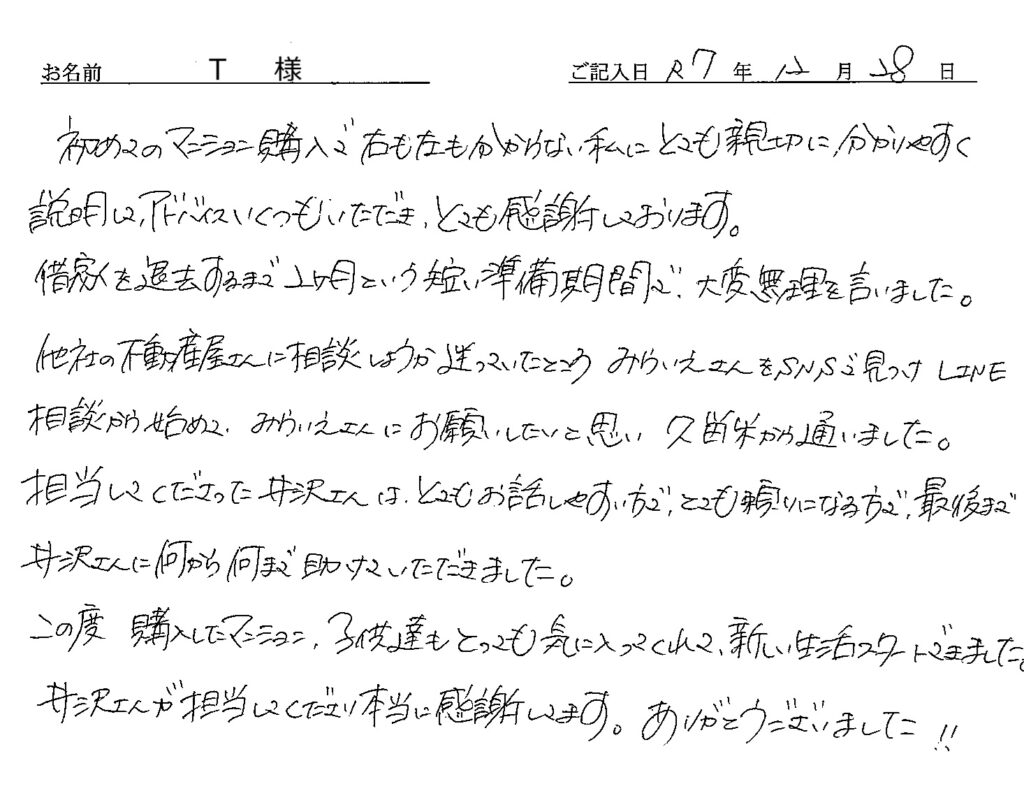 お名前 T 様 ご記入日 R7年 12月 28日
初めてのマンション購入で右も左も分からない私にとても親切に、分かりやすく
説明して、アドバイスいくつもいただき、とても感謝しております。
借家を退去するまで1ヶ月という短い準備期間で、大変無理を言いました。
他社の不動産屋さんに相談しようか迷っていたところ みらいえさんをSNSで見つけ LINE
相談から始めて、みらいえさんにお願いしたいと思い 久留米から通いました。
担当してくださった井沢さんは、とてもお話しやすい方で、とても頼りになる方で、最後まで
井沢さんに何から何まで助けていただきました。
この度 購入したマンション、子供達もとっても気に入ってくれて、新しい生活スタートできました。
井沢さんが担当してくださり本当に感謝してます。ありがとうございました!!